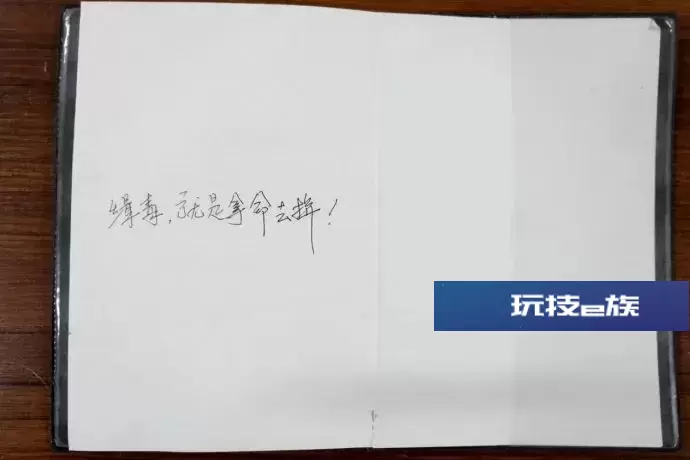 缉毒，就是拿命去拼！
玩技e族